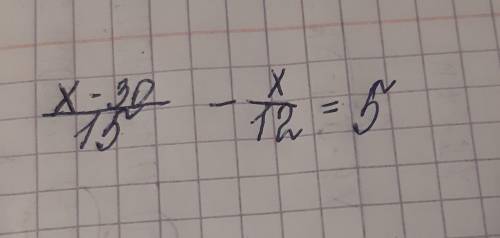 x - 30 / 15 - x / 12 = 5